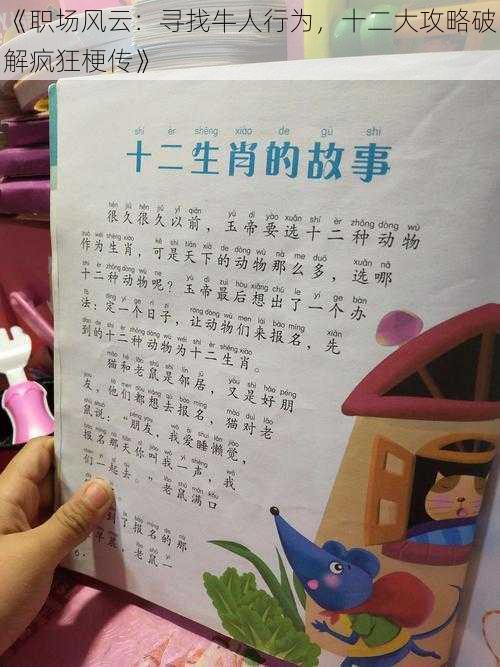 《职场风云：寻找牛人行为，十二大攻略破
解疯狂梗传》
shí èr shēng xiào de gù shi
十二生肖的故事
很久很久以前，玉帝要选十二种动物
作为生肖，可是天下的动物那么多，选哪
十二种动物呢？玉帝最后想出了一个办
法，定一个日子，让动物们来报名，先
到的十二种动物为十二生肖。
猫和老鼠是邻居，又是好朋
友，他们都想去报名，猫对老
鼠说：“朋友，我爱睡懒觉，
报名那天你叫我一声，我
们一起去。”老鼠满口
到了报名的那
早晨，老鼠一